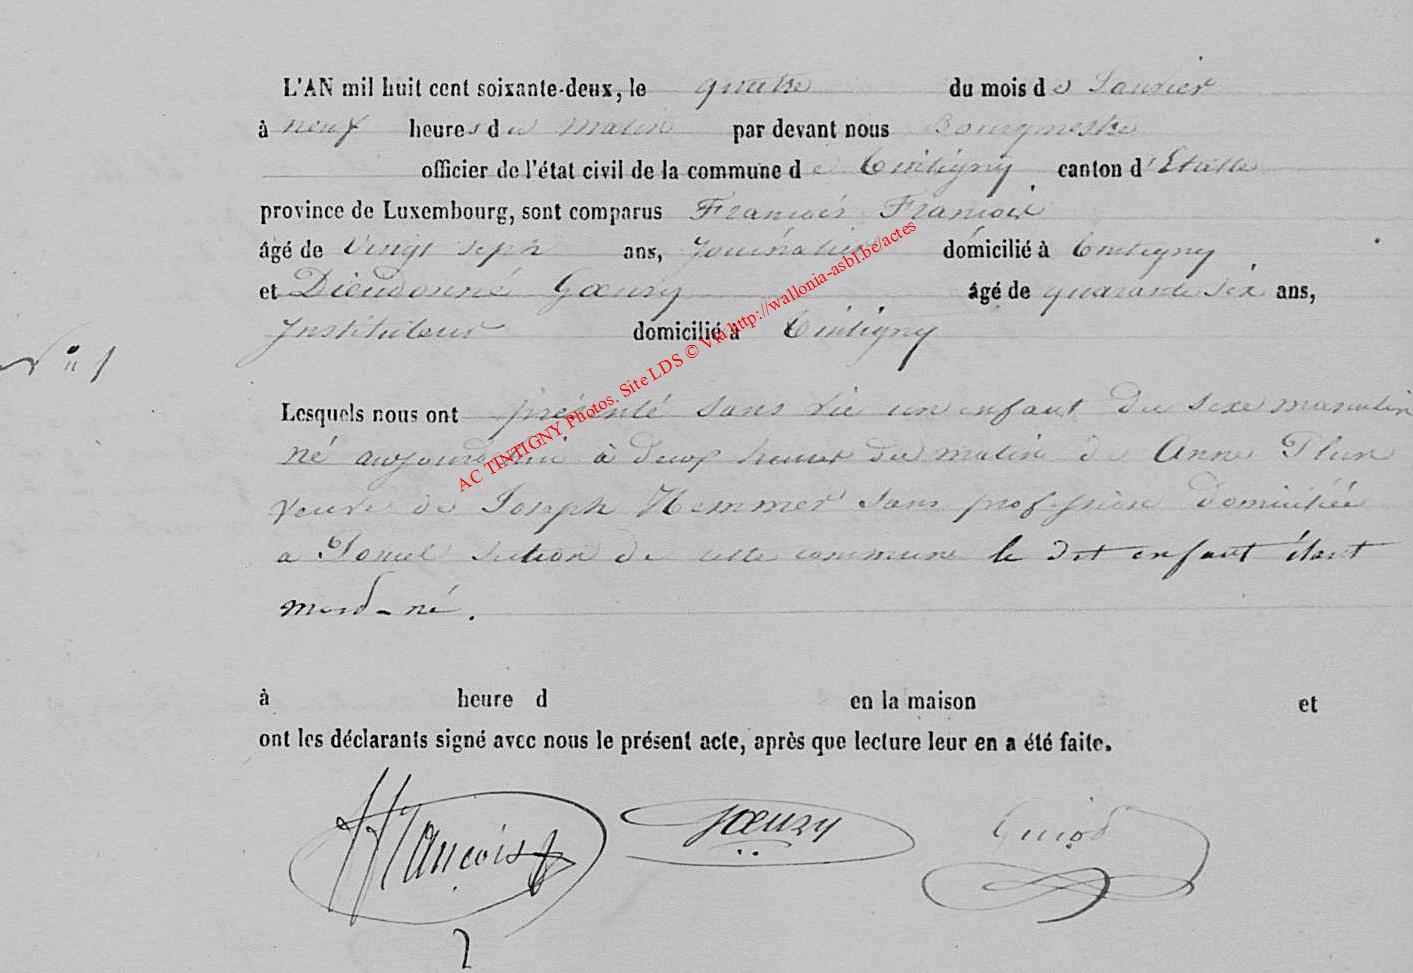 L'AN mil huit cent soixante-deux, le quatre du mois de Janvier
à neuf heures du matin par devant nous Bourgmestre
officier de l'état civil de la commune de Tintigny canton d'Etalle
province de Luxembourg, sont comparus François François
âgé de vingt sept ans, Journalier domicilié à Tintigny
et Dieudonné Gœury âgé de quarante six ans,
Instituteur domicilié à Tintigny
N° 1
Lesquels nous ont présenté sans vie un enfant du sexe masculin
né aujourd'hui à deux heures du matin de Anne
veuve de Joseph Hemmer sans profession domiciliée
a section de cette commune le dit enfant étant
mord-né.
à heure d en la maison et
ont les déclarants signé avec nous le présent acte, après que lecture leur en a été faite.
François Gœury
AC TINTIGNY Photos. Site LDS © Via http://wallonia-asbl.be/actes